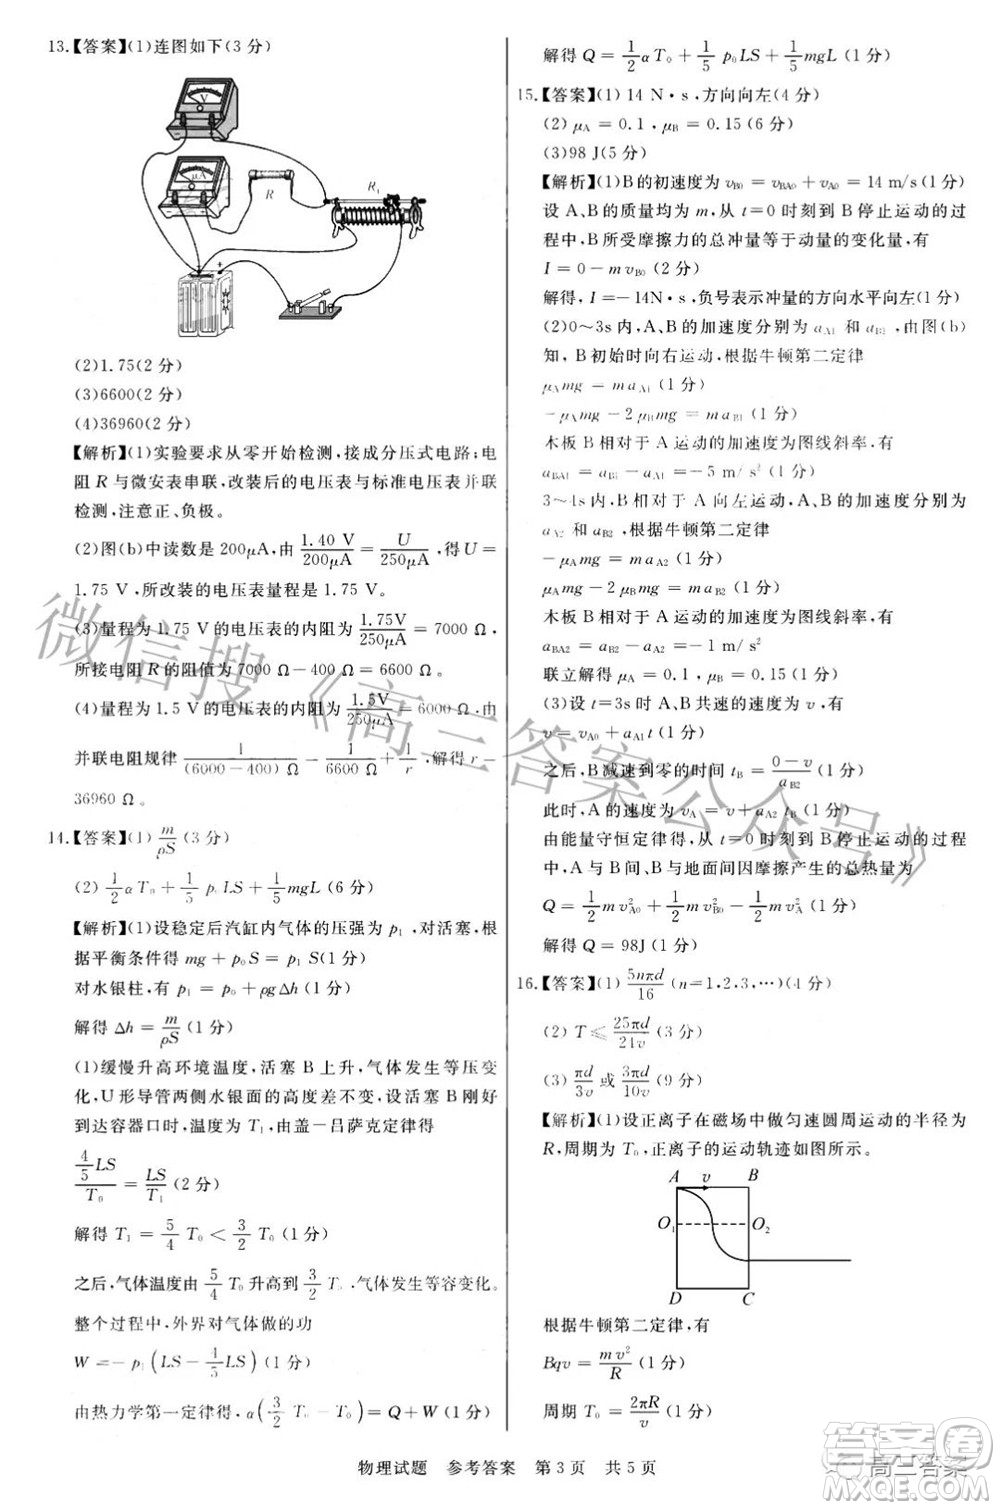 13.【答案】(1)连图如下(3分)
V
μA
R
R₁
(2)1.75(2分)
(3)6600(2分)
(4)36960(2分)
【解析】(1)实验要求从零开始检测，接成分压式电路；电
阻 R 与微安表串联，改装后的电压表与标准电压表并联
检测，注意正、负极。
(2)图(b)中读数是 200μA，由 1.40 V/200μA = U/250μA，得 U =
1.75 V，所改装的电压表量程是 1.75 V。
(3)量程为 1.75 V 的电压表的内阻为 1.75V/250μA = 7000 Ω，
所接电阻 R 的阻值为 7000 Ω－400 Ω＝6600 Ω。
(4)量程为 1.5 V 的电压表的内阻为 1.5V/250μA = 6000 Ω，由
并联电阻规律 1/((6000－400) Ω) = 1/(6600 Ω) + 1/r，解得 r＝
36960 Ω。
14.【答案】(1) m/ρS (3分)
(2) 1/2 α T₀ + 1/5 p₀LS + 1/5 mgL (6分)
【解析】(1)设稳定后汽缸内气体的压强为 p₁，对活塞，根
据平衡条件得 mg + p₀S = p₁S(1分)
对水银柱，有 p₁ = p₀ + ρgΔh(1分)
解得 Δh = m/ρS (1分)
(1)缓慢升高环境温度，活塞 B 上升，气体发生等压变
化，U 形导管两侧水银面的高度差不变，设活塞 B 刚好
到达容器口时，温度为 T₁，由盖－吕萨克定律得
(4/5 LS)/T₀ = LS/T₁ (2分)
解得 T₁ = 5/4 T₀ < 3/2 T₀ (1分)
之后，气体温度由 5/4 T₀ 升高到 3/2 T₀，气体发生等容变化。
整个过程中，外界对气体做的功
W = －p₁(LS － 4/5 LS)(1分)
由热力学第一定律得，α(3/2 T₀ － T₀) = Q + W(1分)
解得 Q = 1/2 α T₀ + 1/5 p₀LS + 1/5 mgL
15.【答案】(1) 14 N·s，方向向左(4分)
(2) μA = 0.1，μB = 0.15(6分)
(3)98 J(5分)
【解析】(1)B 的初速度为 vB0 = vBA0 + vA0 = 14 m/s(1分)
设 A、B 的质量均为 m，从 t＝0 时刻到 B 停止运动的过
程中，B 所受摩擦力的总冲量等于动量的变化量，有
I = 0－mvB0(2分)
解得，I＝－14N·s，负号表示冲量的方向水平向左(1分)
(2)0～3s 内，A、B 的加速度分别为 aA1 和 aB2，由图(b)
知，B 初始时向右运动，根据牛顿第二定律
μAmg = maA1(1分)
－μAmg－2μBmg = maB1(1分)
木板 B 相对于 A 运动的加速度为图线斜率，有
aBA1 = aB1－aA1 = －5 m/s²(1分)
3～4s 内，B 相对于 A 向左运动，A、B 的加速度分别为
aA2 和 aB2，根据牛顿第二定律
－μAmg = maA2(1分)
μAmg－2μBmg = maB2(1分)
木板 B 相对于 A 运动的加速度为图线斜率，有
aBA2 = aB2－aA2 = －1 m/s²
联立解得 μA = 0.1，μB = 0.15(1分)
(3)设 t＝3s 时 A、B 共速的速度为 v，有
v = vA0 + aA1t(1分)
之后，B 减速到零的时间 tB = (0－v)/aB2 (1分)
此时，A 的速度为 vA = v + aA2 tB(1分)
由能量守恒定律得，从 t＝0 时刻到 B 停止运动的过程
中，A 与 B 间、B 与地面间因摩擦产生的总热量为
Q = 1/2 mv²A0 + 1/2 mv²B0 － 1/2 mv²A (1分)
解得 Q = 98J(1分)
16.【答案】(1) 5nπd/16 (n＝1，2，3，…)(4分)
(2) T ⩽ 25πd/24v (3分)
(3) πd/3v 或 3πd/10v (9分)
【解析】(1)设正离子在磁场中做匀速圆周运动的半径为
R，周期为 T₀，正离子的运动轨迹如图所示。
A v B
O₁ O₂
D C
根据牛顿第二定律，有
Bqv = mv²/R (1分)
周期 T₀ = 2πR/v (1分)
物理试题 参考答案 第 3 页 共 5 页
微信搜《高三答案公众号》
高三答案
答案圈
MXQE.COM